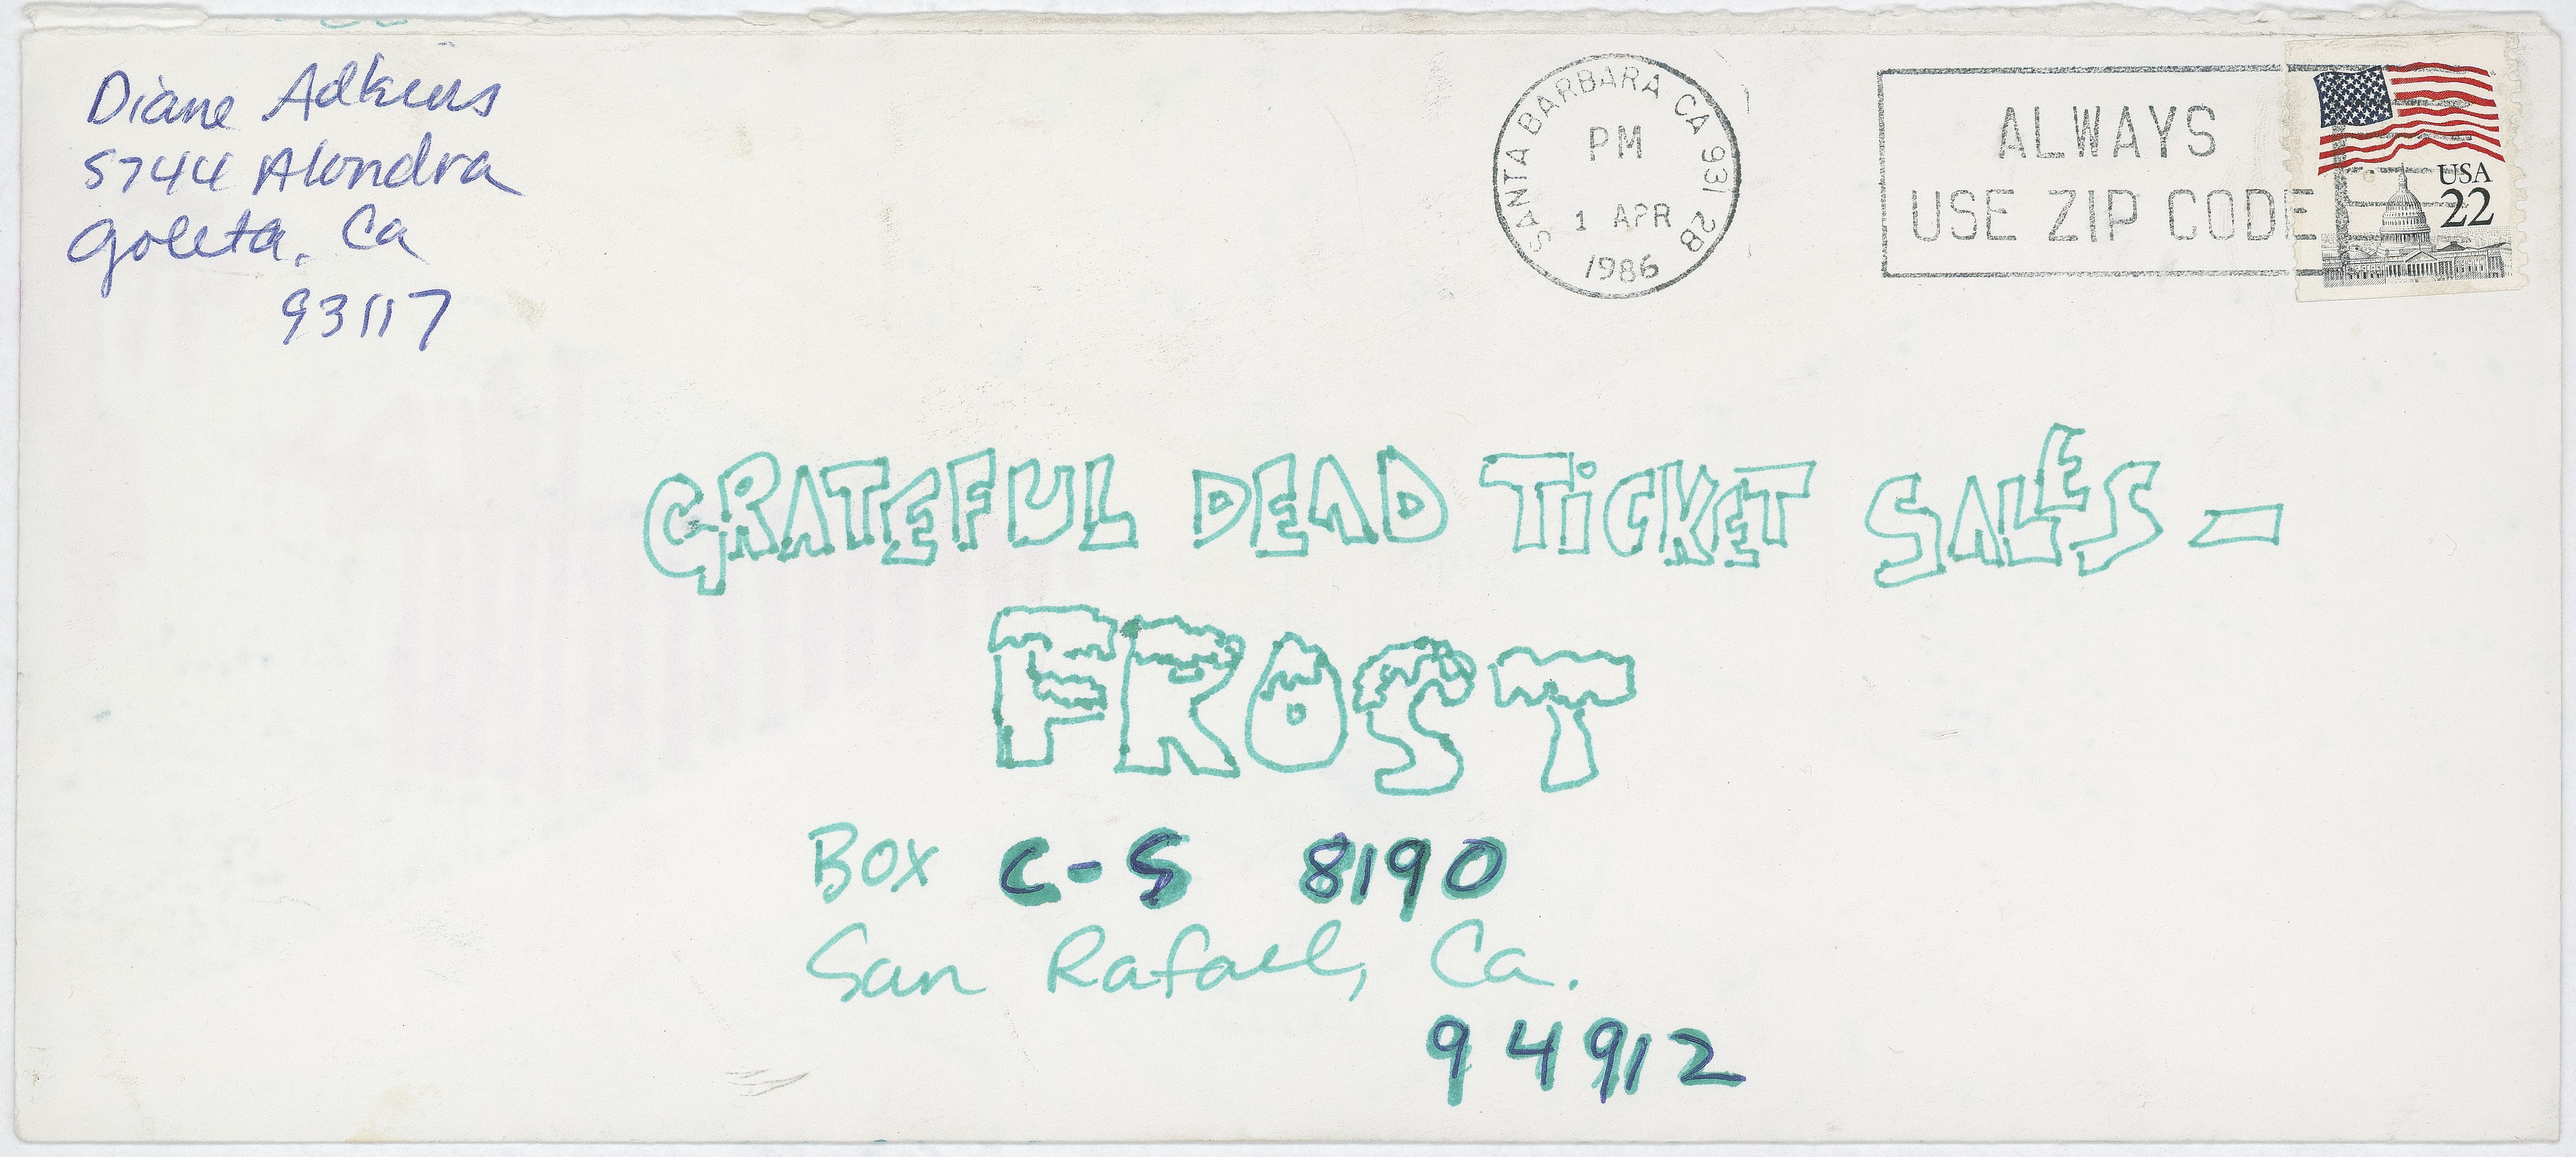 Diane Adkins
5744 Alondra
Goleta, Ca
93117
SANTA BARBARA CA 931 2B
PM
1 APR
1986
ALWAYS
USE ZIP CODE
USA
22
GRATEFUL DEAD TiCKET SALES –
FROST
Box C-S 8190
San Rafael, Ca.
94912